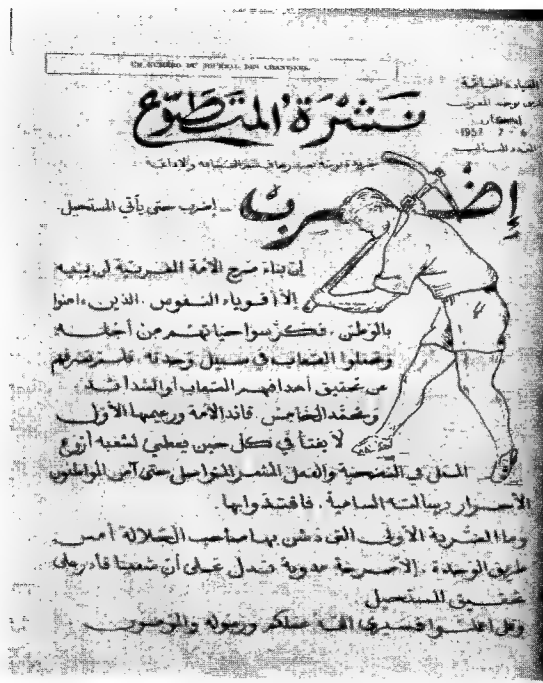 UN NUMÉRO DU JOURNAL DES CHANTIERS
نشرة المتطوع
طريق توحيد المغرب
1957 - 7 - 6
إضرب
إضرب حتى يأتي المستحيل
إن بناء صرح الأمة المغربية لن يبنيه
إلا أقوياء النفوس، الذين ءامنوا
بالوطن، فكرسوا حياتهم من أجله
الصعاب في سبيل وحدته
عن تحقيق أهدافهم الصعاب أو الشدائد
ومحمد الخامس قائد الأمة وزعيمها الأول
لا يفتأ في كل حين يعطي لشعبه أروع
المثل في التضحية والعمل المثمر المتواصل حتى آمن المواطنون
الأحرار برسالته السامية، فاقتدوا بها.
وما الضربة الأولى التي دشن بها صاحب الجلالة أمس
طريق الوحدة، إلا صرخة مدوية تدل على أن شعبنا قادر على
تحقيق المستحيل
وقل اعملوا فسيرى الله عملكم ورسوله والمومنون